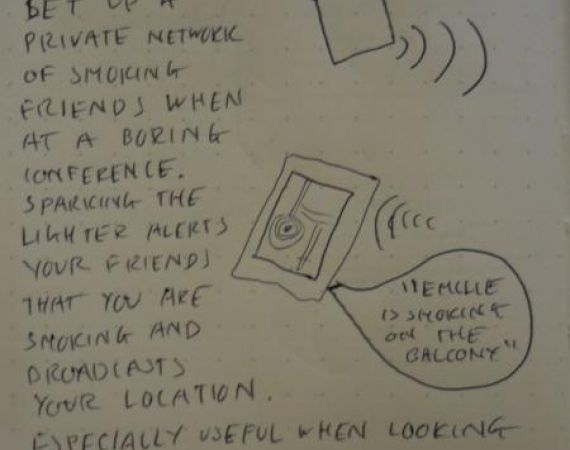 SET UP A
PRIVATE NETWORK
OF SMOKING
FRIENDS WHEN
AT A BORING
CONFERENCE.
SPARKING THE
LIGHTER ALERTS
YOUR FRIENDS
THAT YOU ARE
SMOKING AND
BROADCASTS
YOUR LOCATION.
ESPECIALLY USEFUL WHEN LOOKING
"EMILIE
IS SMOKING
ON THE
BALCONY"